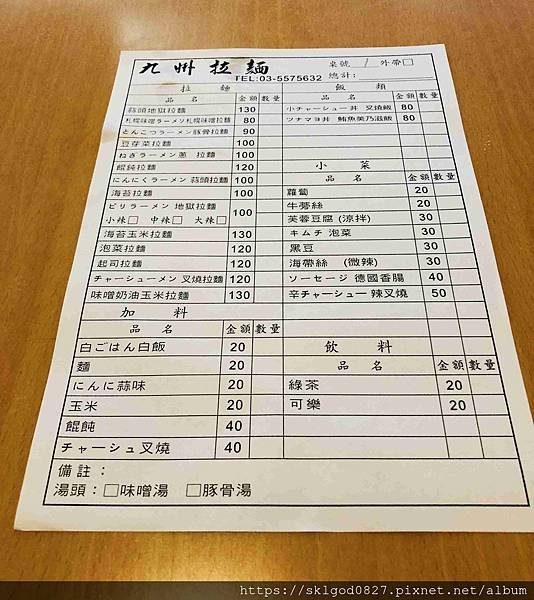 九州拉麵
TEL:03-5575632
桌號 / 外帶□
總計:
拉 麵
品 名 金額 數量
蒜頭地獄拉麵 130
札幌味噌ラーメン札幌味噌拉麵 80
とんこつラーメン豚骨拉麵 90
豆芽菜拉麵 100
ねぎラーメン蔥 拉麵 100
餛飩拉麵 120
にんにくラーメン 蒜頭拉麵 100
海苔拉麵 100
ビリラーメン 地獄拉麵 100
小辣□ 中辣□ 大辣□
海苔玉米拉麵 130
泡菜拉麵 120
起司拉麵 120
チャーシューメン 叉燒拉麵 120
味噌奶油玉米拉麵 130
加 料
品 名 金額 數量
白ごはん白飯 20
麵 20
にんに蒜味 20
玉米 20
餛飩 40
チャーシュ叉燒 40
飯 類
品 名 金額 數量
小チャーシュー丼 叉燒飯 80
ツナマヨ丼 鮪魚美乃滋飯 80
小 菜
品 名 金額 數量
蘿蔔 20
牛蒡絲 20
芙蓉豆腐 (涼拌) 30
キムチ 泡菜 30
黑豆 30
海帶絲 (微辣) 30
ソーセージ 德國香腸 40
辛チャーシュー 辣叉燒 50
飲 料
品 名 金額 數量
綠茶 20
可樂 20
備註：
湯頭：□味噌湯 □豚骨湯
https://sklgod0827.pixnet.net/album